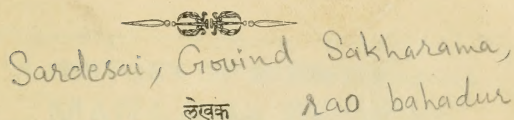 Sardesai, Govind Sakharama,
लेखक rao bahadur